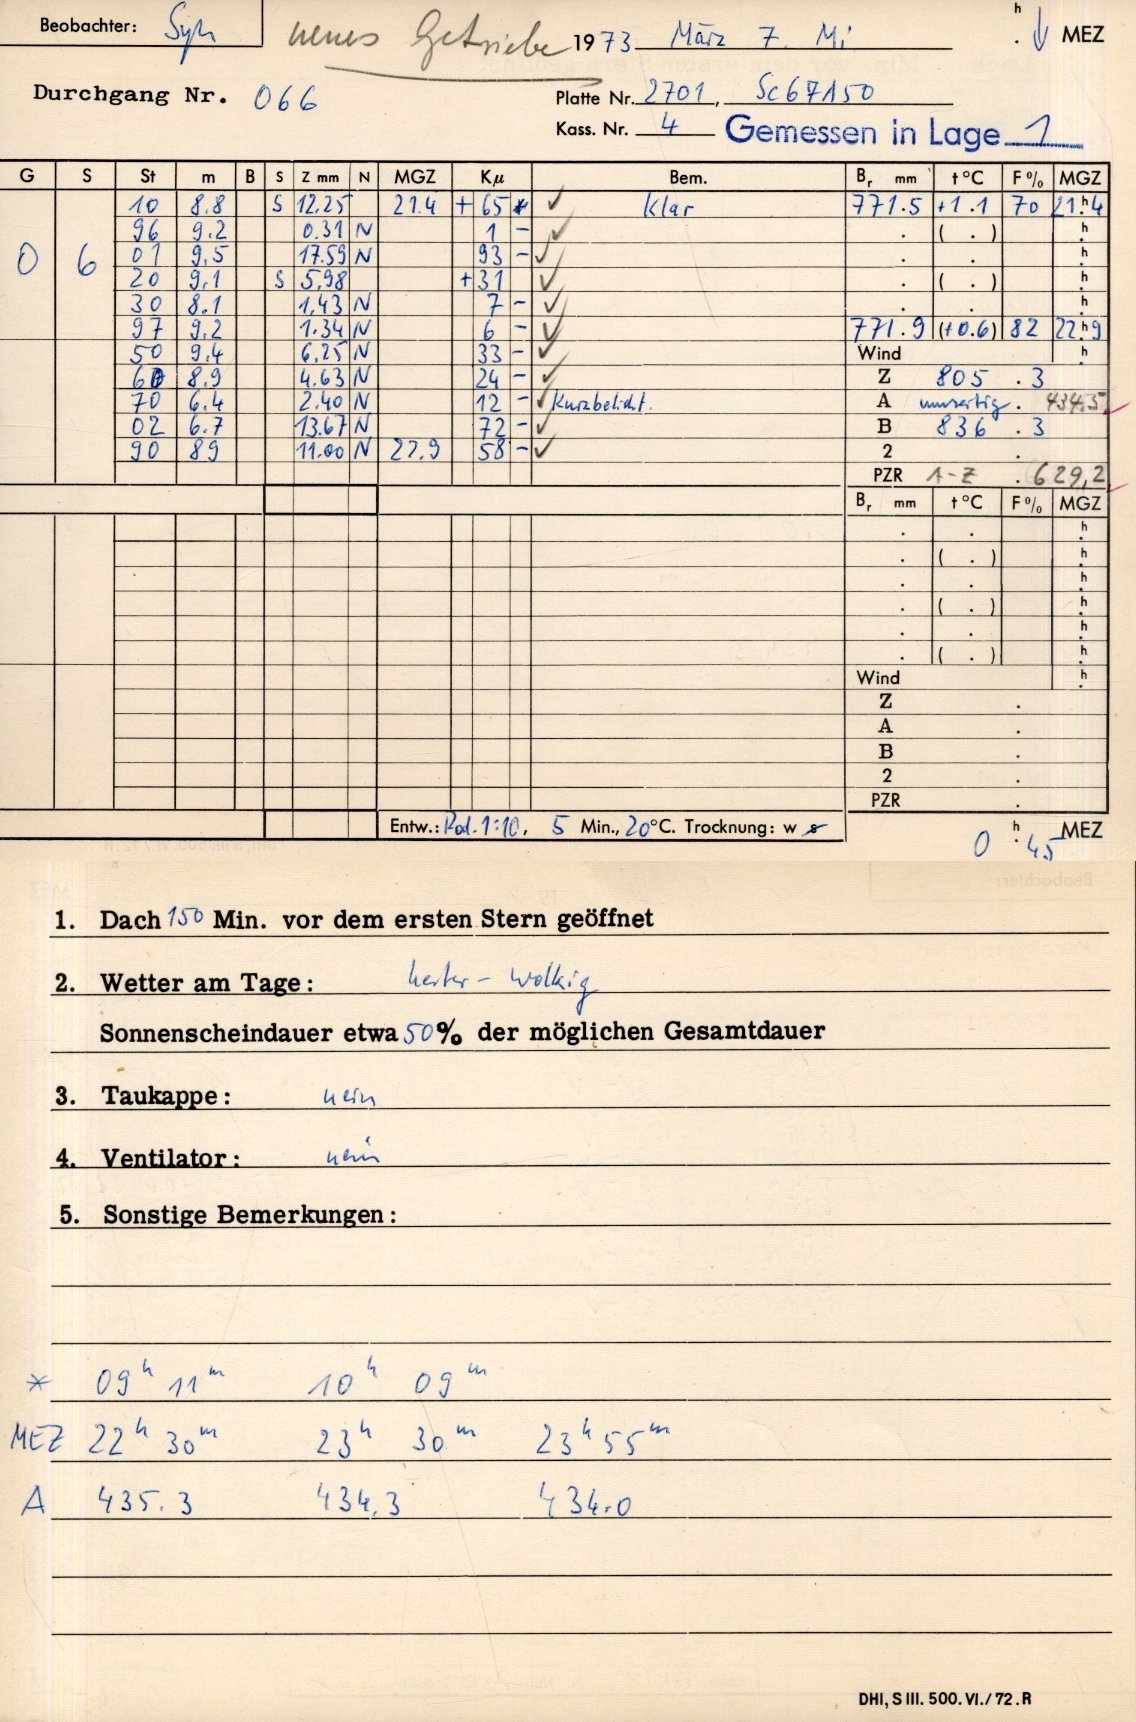 Beobachter: Syh neues Getriebe 1973 März 7. Mi h . ↓ MEZ
Durchgang Nr. 066 Platte Nr. 2701, Sc67A50
Kass. Nr. 4 Gemessen in Lage 1
G S St m B S Z mm N MGZ Kμ Bem. Br mm t °C F % MGZ
10 8.8 S 12.25 21.4 + 65 ✓ Klar 771.5 +1.1 70 21h4
96 9.2 0.31 N 1 - ✓ . ( . ) h
0 6 01 9.5 17.59 N 93 - ✓ . . h
20 9.1 S 5.98 + 31 ✓ . ( . ) h
30 8.1 1.43 N 7 - ✓ . . h
97 9.2 1.34 N 6 - ✓ 771.9 (+0.6) 82 22h9
50 9.4 6.25 N 33 - ✓ Wind h
60 8.9 4.63 N 24 - ✓ Z 805 . 3
70 6.4 2.40 N 12 - ✓ Kurzbelicht. A umseitig . 434.5
02 6.7 13.67 N 72 - ✓ B 836 . 3
90 89 11.00 N 22.9 58 - ✓ 2 .
PZR A-Z . 629,2
Br mm t °C F % MGZ
. . h
. ( . ) h
. . h
. ( . ) h
. . h
. ( . ) h
Wind h
Z .
A .
B .
2 .
PZR .
Entw.: Rod. 1:10, 5 Min., 20 °C. Trocknung: w s
0 h . 45 MEZ
1. Dach 150 Min. vor dem ersten Stern geöffnet
2. Wetter am Tage: heiter - wolkig
Sonnenscheindauer etwa 50 % der möglichen Gesamtdauer
3. Taukappe: nein
4. Ventilator: nein
5. Sonstige Bemerkungen:
* 09h 11m 10h 09m
MEZ 22h 30m 23h 30m 23h 55m
A 435.3 434.3 434.0
DHI, S III. 500. VI./72.R